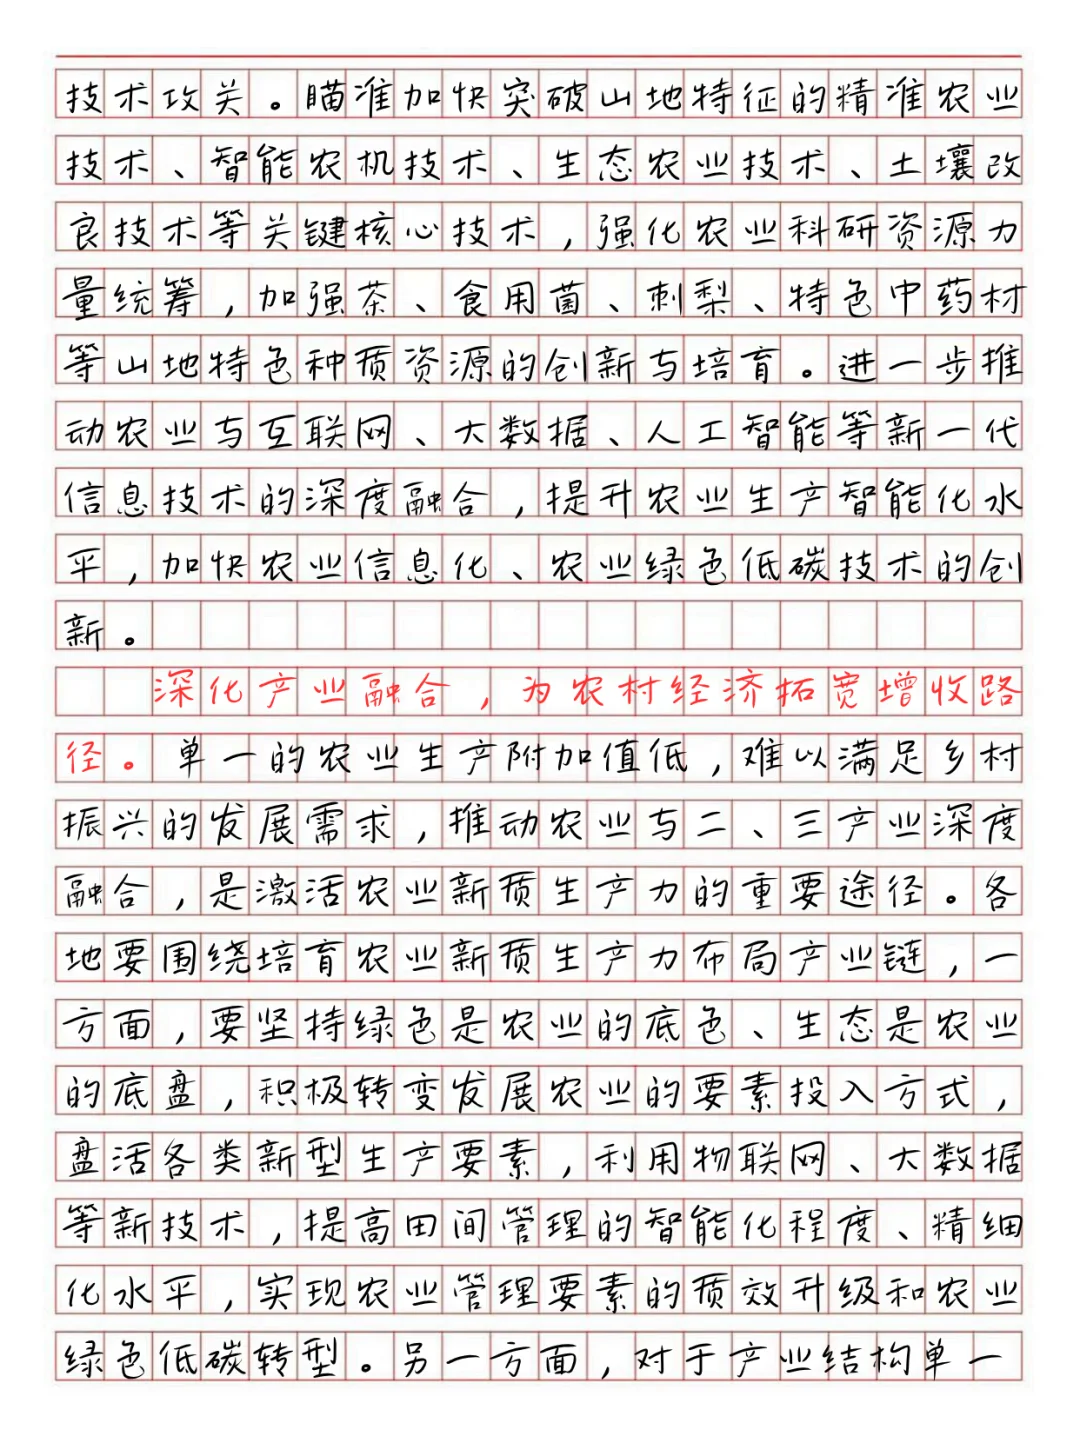 技术攻关。瞄准加快突破山地特征的精准农业
技术、智能农机技术、生态农业技术、土壤改
良技术等关键核心技术，强化农业科研资源力
量统筹，加强茶、食用菌、刺梨、特色中药材
等山地特色种质资源的创新与培育。进一步推
动农业与互联网、大数据、人工智能等新一代
信息技术的深度融合，提升农业生产智能化水
平，加快农业信息化、农业绿色低碳技术的创
新。
深化产业融合，为农村经济拓宽增收路
径。单一的农业生产附加值低，难以满足乡村
振兴的发展需求，推动农业与二、三产业深度
融合，是激活农业新质生产力的重要途径。各
地要围绕培育农业新质生产力布局产业链，一
方面，要坚持绿色是农业的底色、生态是农业
的底盘，积极转变发展农业的要素投入方式，
盘活各类新型生产要素，利用物联网、大数据
等新技术，提高田间管理的智能化程度、精细
化水平，实现农业管理要素的质效升级和农业
绿色低碳转型。另一方面，对于产业结构单一